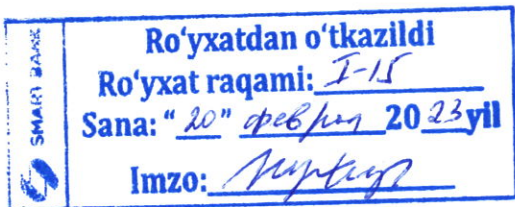 SMART BANK
Ro‘yxatdan o‘tkazildi
Ro‘yxat raqami: I-15
Sana: “20” феврал 2023 yil
Imzo: